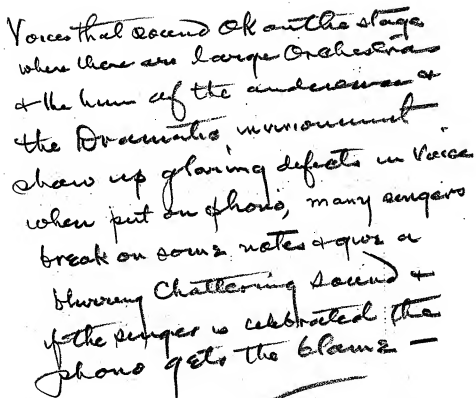 Voices that sound OK on the stage
where there are large Orchestras
& the hum of the audience &
the Dramatic invironment
show up glaring defects in Voice
when put on phono, many singers
break on some notes & give a
blurring Chattering sound &
if the singer is celebrated the
phono gets the blame —